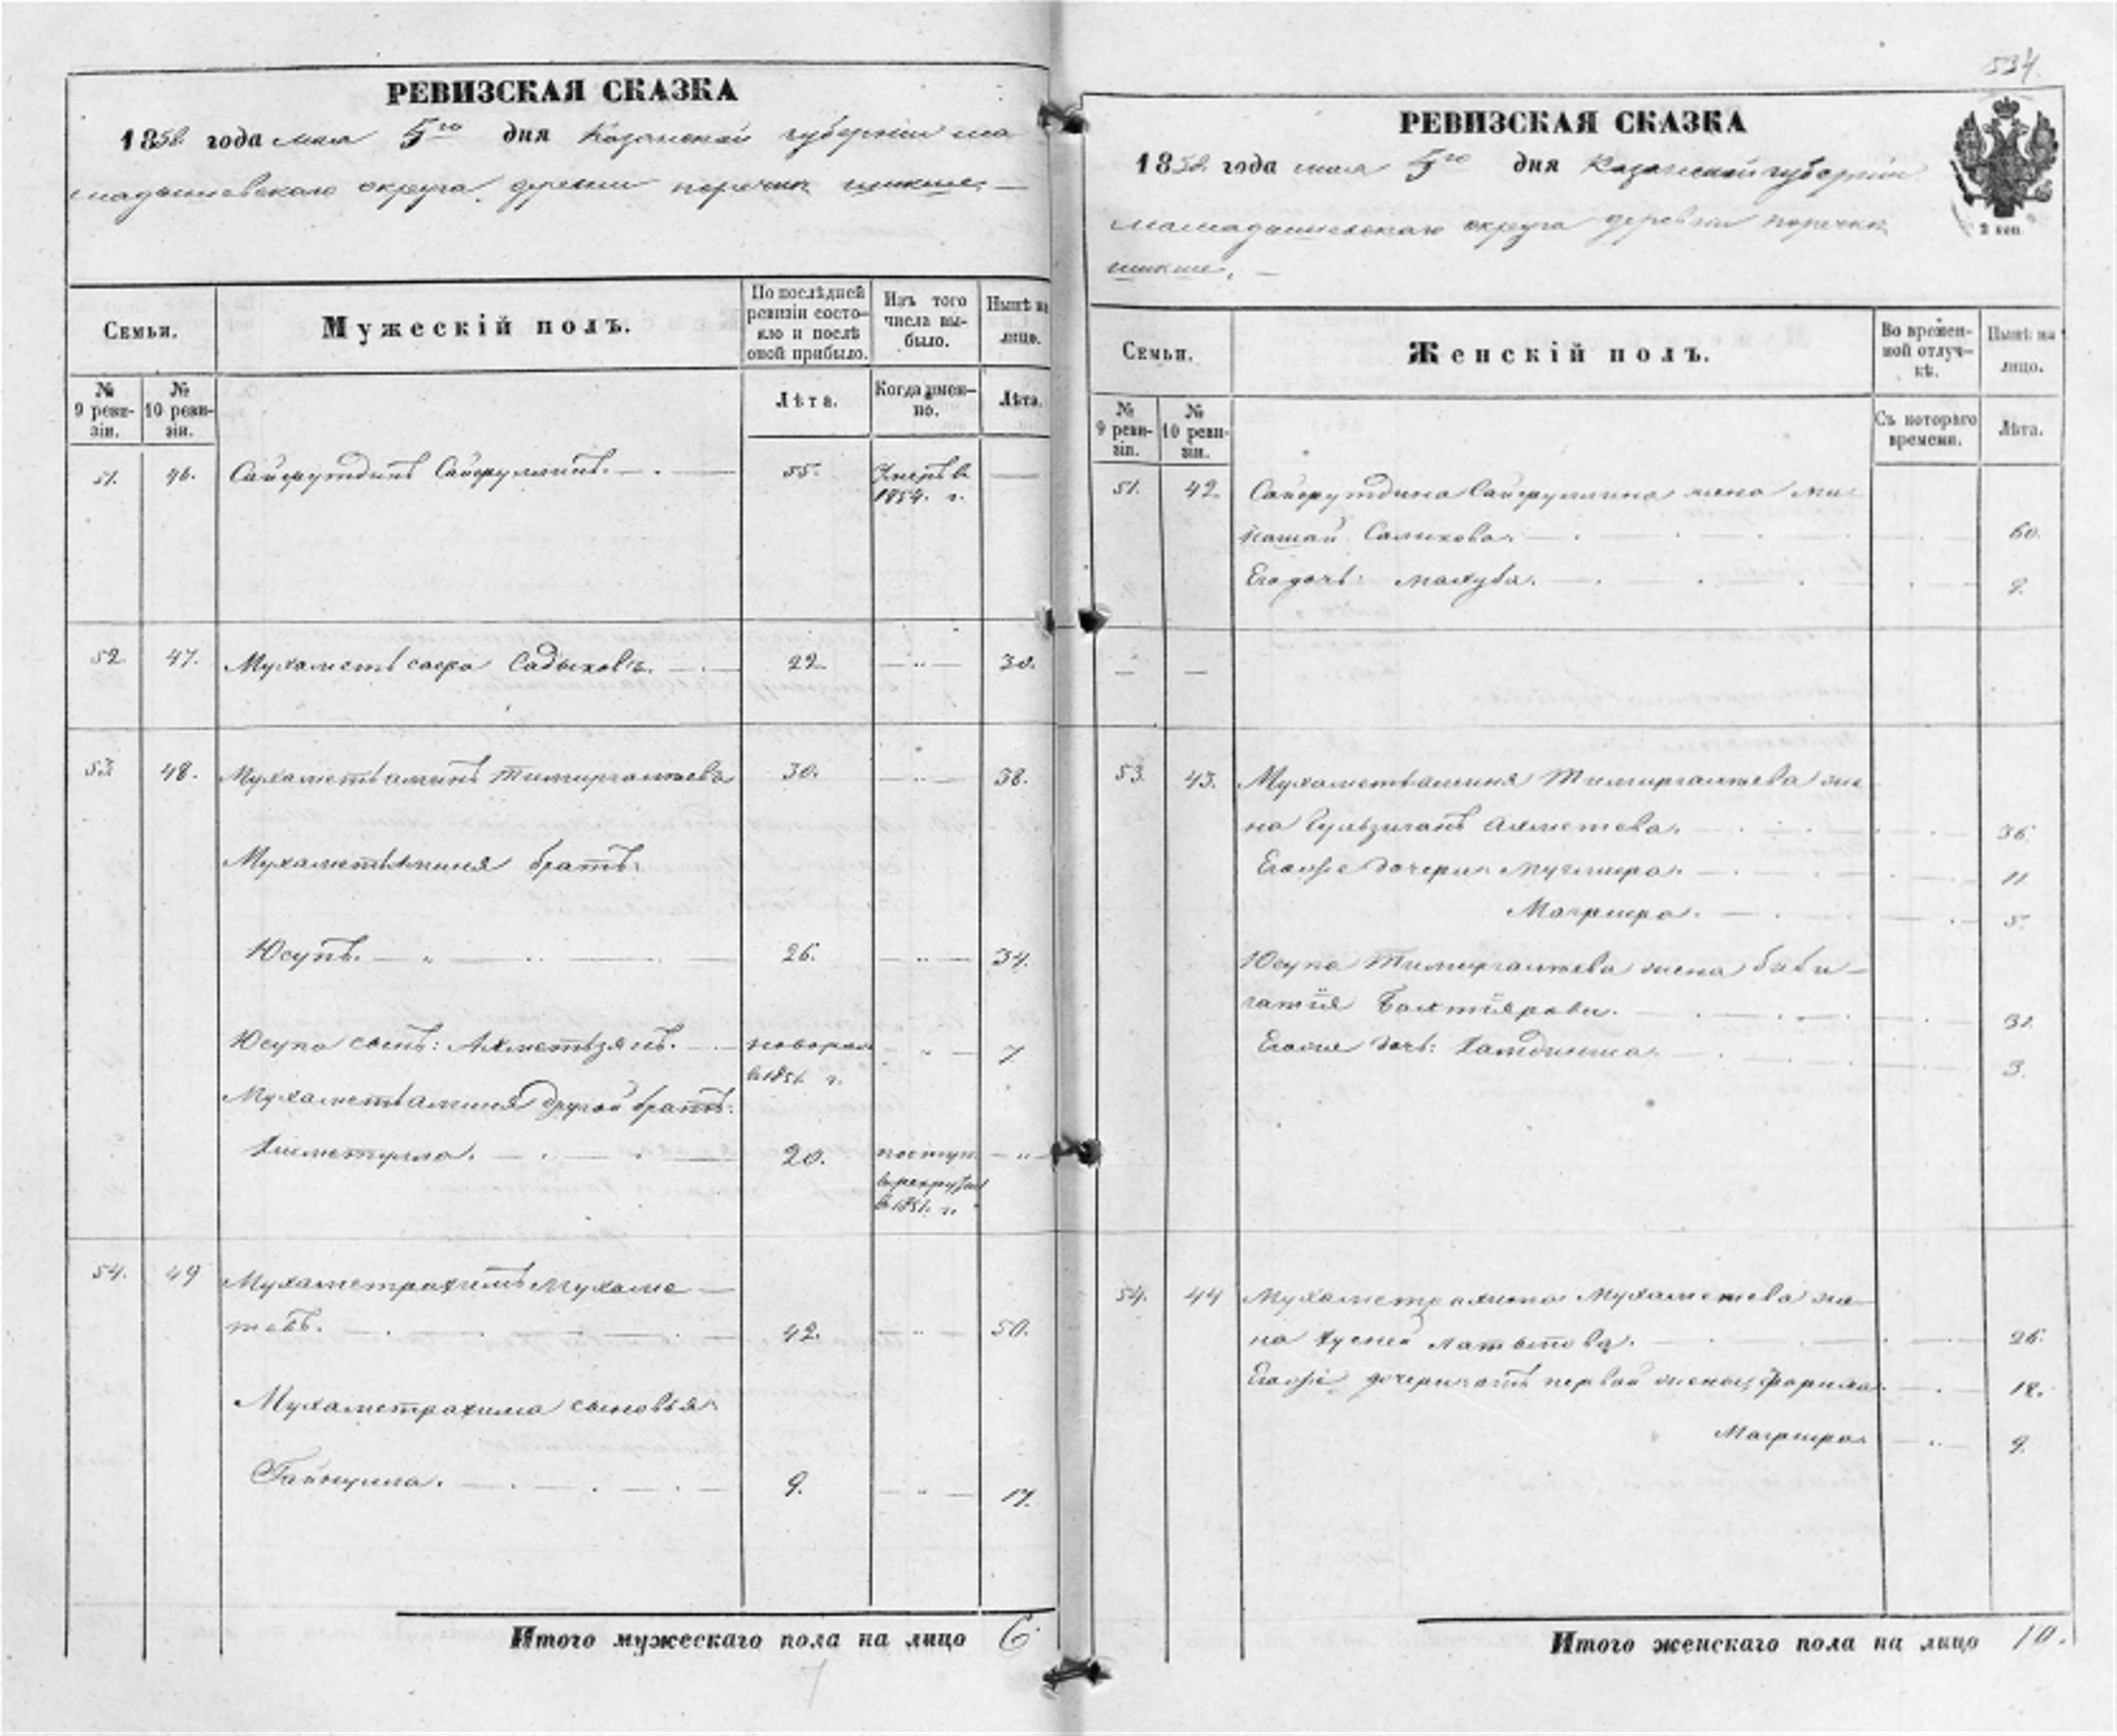 РЕВИЗСКАЯ СКАЗКА
1858 года мая 5го дня Казанской губернии ма
мадышевскаго округа деревни поречки шикши. —
Семьи.
Мужескій полъ.
По послѣдней ревизіи состояло и послѣ оной прибыло.
Изъ того числа выбыло.
Нынѣ на лицо.
№ 9 ревизіи.
№ 10 ревизіи.
Лѣта.
Когда именно.
Лѣта.
51. 46. Сайфутдинъ Сайфуллинъ. 55. Умеръ в
1854. г.
52. 47. Мухаметь сафа Садыковъ. 22. 30.
53. 48. Мухаметьаминъ Тимиргалиева 30. 38.
Мухаметьаминя братъ:
Юсупъ. 26. 34.
Юсупа сынъ: Ахметьзянъ. новорож 7
в 1851 г.
Мухаметьаминя другой братъ:
Хисметулла. 20. поступ.
в рекруты
в 1851. г.
54. 49 Мухаметрахимъ Мухаме—
тевъ. 42. 50.
Мухаметрахима сыновья:
Гайнулла. 9. 17.
Итого мужескаго пола на лицо 6.
7
534.
РЕВИЗСКАЯ СКАЗКА
1858 года мая 5го дня Казанской губерніи
мамадышевскаго округа деревни поречки
шикши. —
2 коп.
Семьи.
Женскій полъ.
Во временной отлучкѣ.
Нынѣ на лицо.
№ 9 ревизіи.
№ 10 ревизіи.
Съ котораго времени.
Лѣта.
51. 42. Сайфутдина Сайфуллина жена
Салихова. 60.
Его дочь: махуба. 9.
53. 43. Мухаметьаминя Тимиргалиева же
на Гульзиганъ Ахметева. 36.
Егоже дочери: 11
Магфира. 5.
Юсупа Тимиргалиева жена биби—
гатія Бахтіярова. 31.
Егоже дочь: 3.
54. 44 Мухаметрахима Мухаметева же—
на Хусния Латыпова. 26.
Егоже дочери отъ первой жены: Фариха. 12.
Магфира. 9.
Итого женскаго пола на лицо 10.